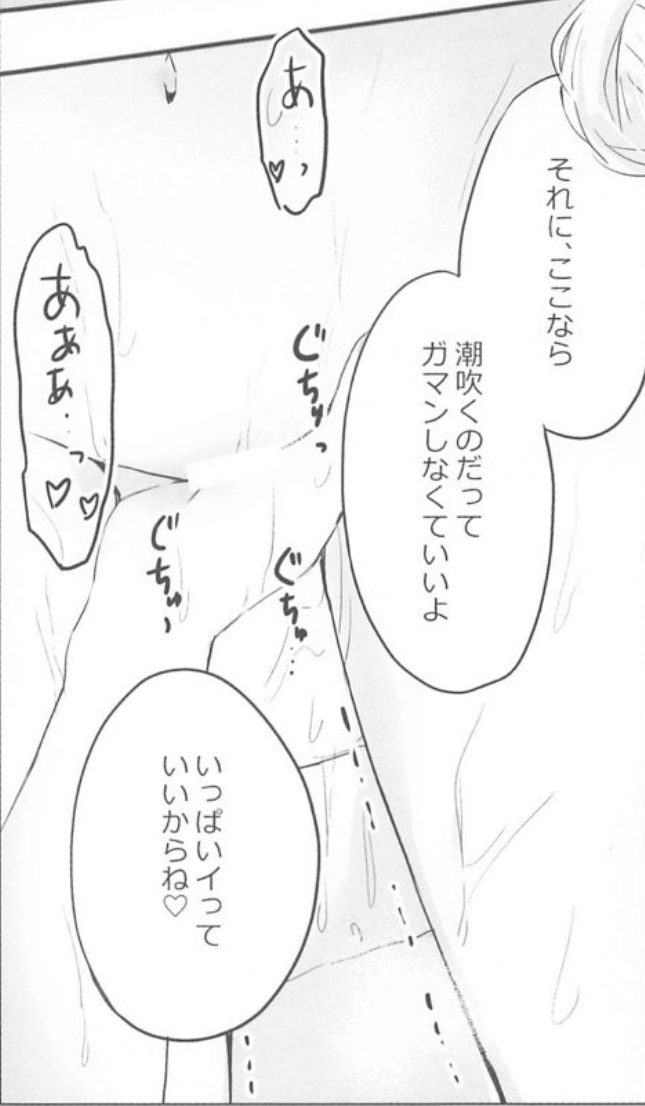 それに、ここなら
潮吹くのだって
ガマンしなくていいよ
あ…っ♡
ぐちゅっ
あああ…っ♡♡
ぐちゅ…
ぐちゅっ
いっぱいイって
いいからね♡